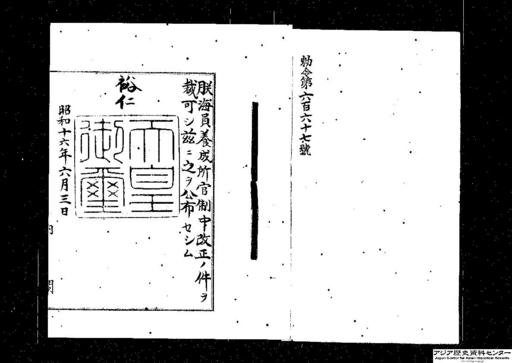 勅令第六百六十七號
朕海員養成所官制中改正ノ件ヲ
裁可シ茲ニ之ヲ公布セシム
裕仁
天皇
御璽
昭和十六年六月三日
内閣
アジア歴史資料センター
Japan Center for Asian Historical Records